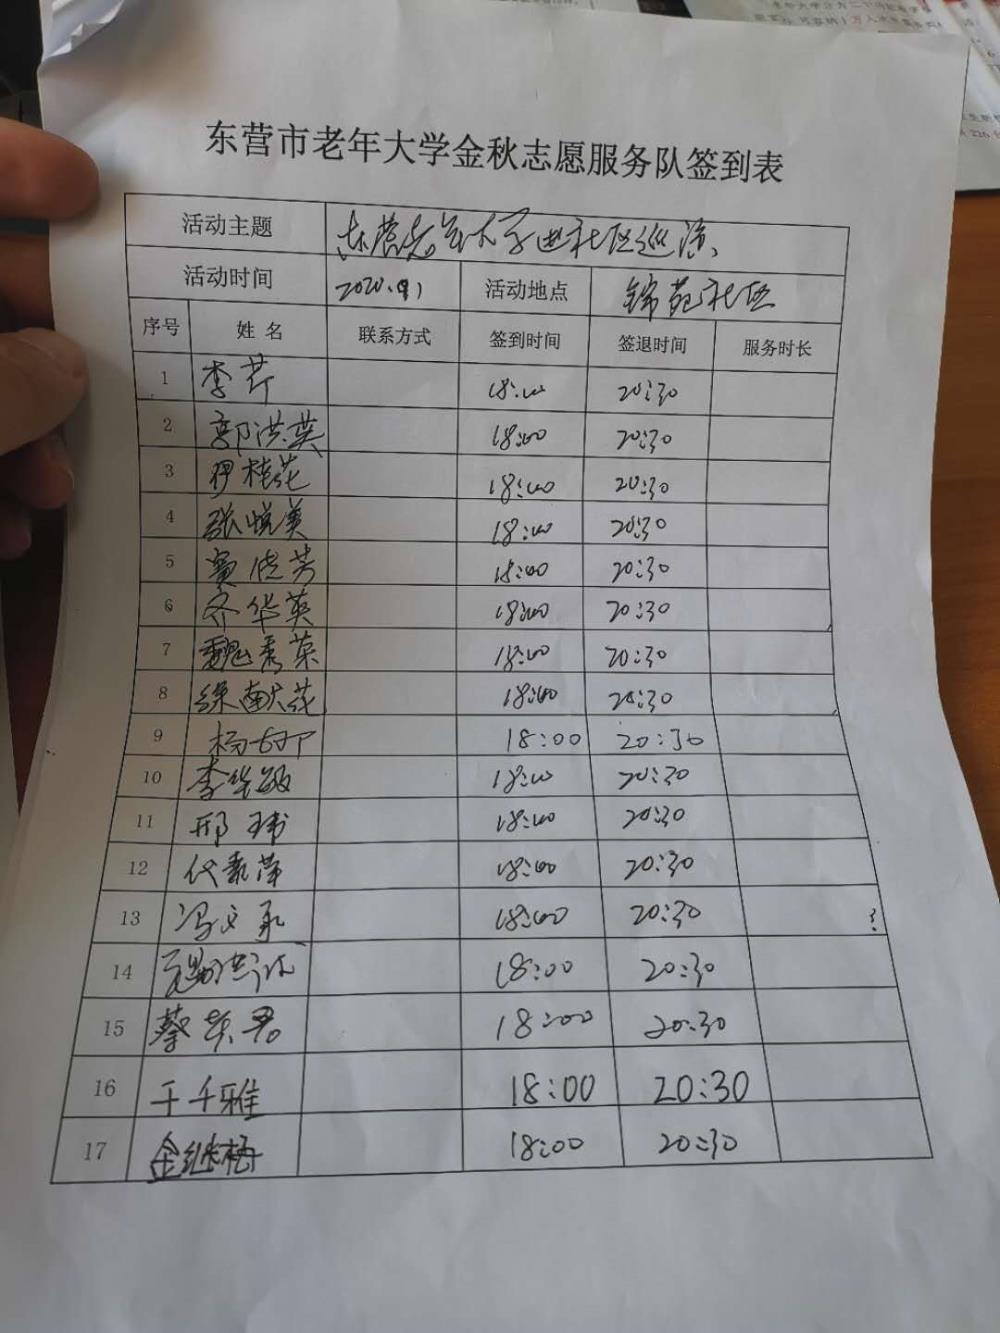 东营市老年大学金秋志愿服务队签到表
活动主题 东营老年大学进社区巡演
活动时间 2020.9.1 活动地点 锦苑社区
序号 姓名 联系方式 签到时间 签退时间 服务时长
1 李芹 18:00 20:30
2 郭洪英 18:00 20:30
3 尹桂花 18:00 20:30
4 张悦美 18:00 20:30
5 窦晓芳 18:00 20:30
6 齐华英 18:00 20:30
7 魏秀荣 18:00 20:30
8 徐献花 18:00 20:30
9 杨 18:00 20:30
10 李华敏 18:00 20:30
11 邢玮 18:00 20:30
12 代素萍 18:00 20:30
13 冯文 18:00 20:30
14 18:00 20:30
15 蔡英君 18:00 20:30
16 于千雅 18:00 20:30
17 金继梅 18:00 20:30